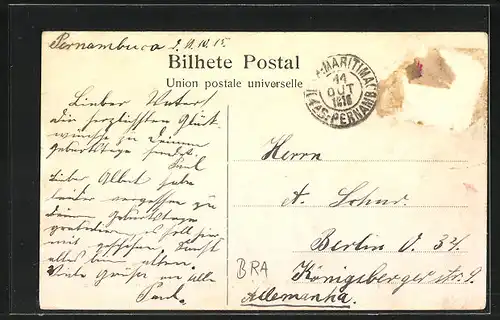 Pernambuco 2. 11. 10. 15.
Bilhete Postal
Union postale universelle
MARITIMA
11
OUT
1910
PERNAMB.
Lieber Vater!
Die herzlichsten Glück-
wünsche zu Deinem
Geburtstage sendet
Paul
Lieber Albert habe
leider vergessen zu
Deinem Geburtstage
gratulieren es soll hier
mit geschehen. Sonst
alles beim alten.
Viele Grüße an alle
Paul.
Herrn
A. Schur.
Berlin O. 34.
Königsbergerstr. 9.
Allemanha.
BRA